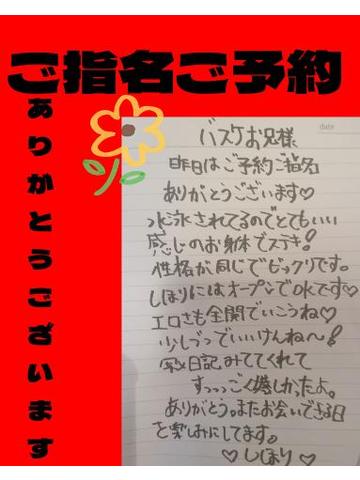 ご指名ご予約
ありがとうございます
date
バスケお兄様
昨日はご予約ご指名
ありがとうございます♡
水泳されてるのでとてもいい
感じのお身体でステキ!
性格が同じでビックリです。
しほりにはオープンでOKです♡
エロさも全開でいこうね♡
少しづつでいいけんね〜!
写メ日記みててくれて
すっっごく嬉しかったよ。
ありがとう。またお会いできる日
を楽しみにしてます。
♡しほり♡